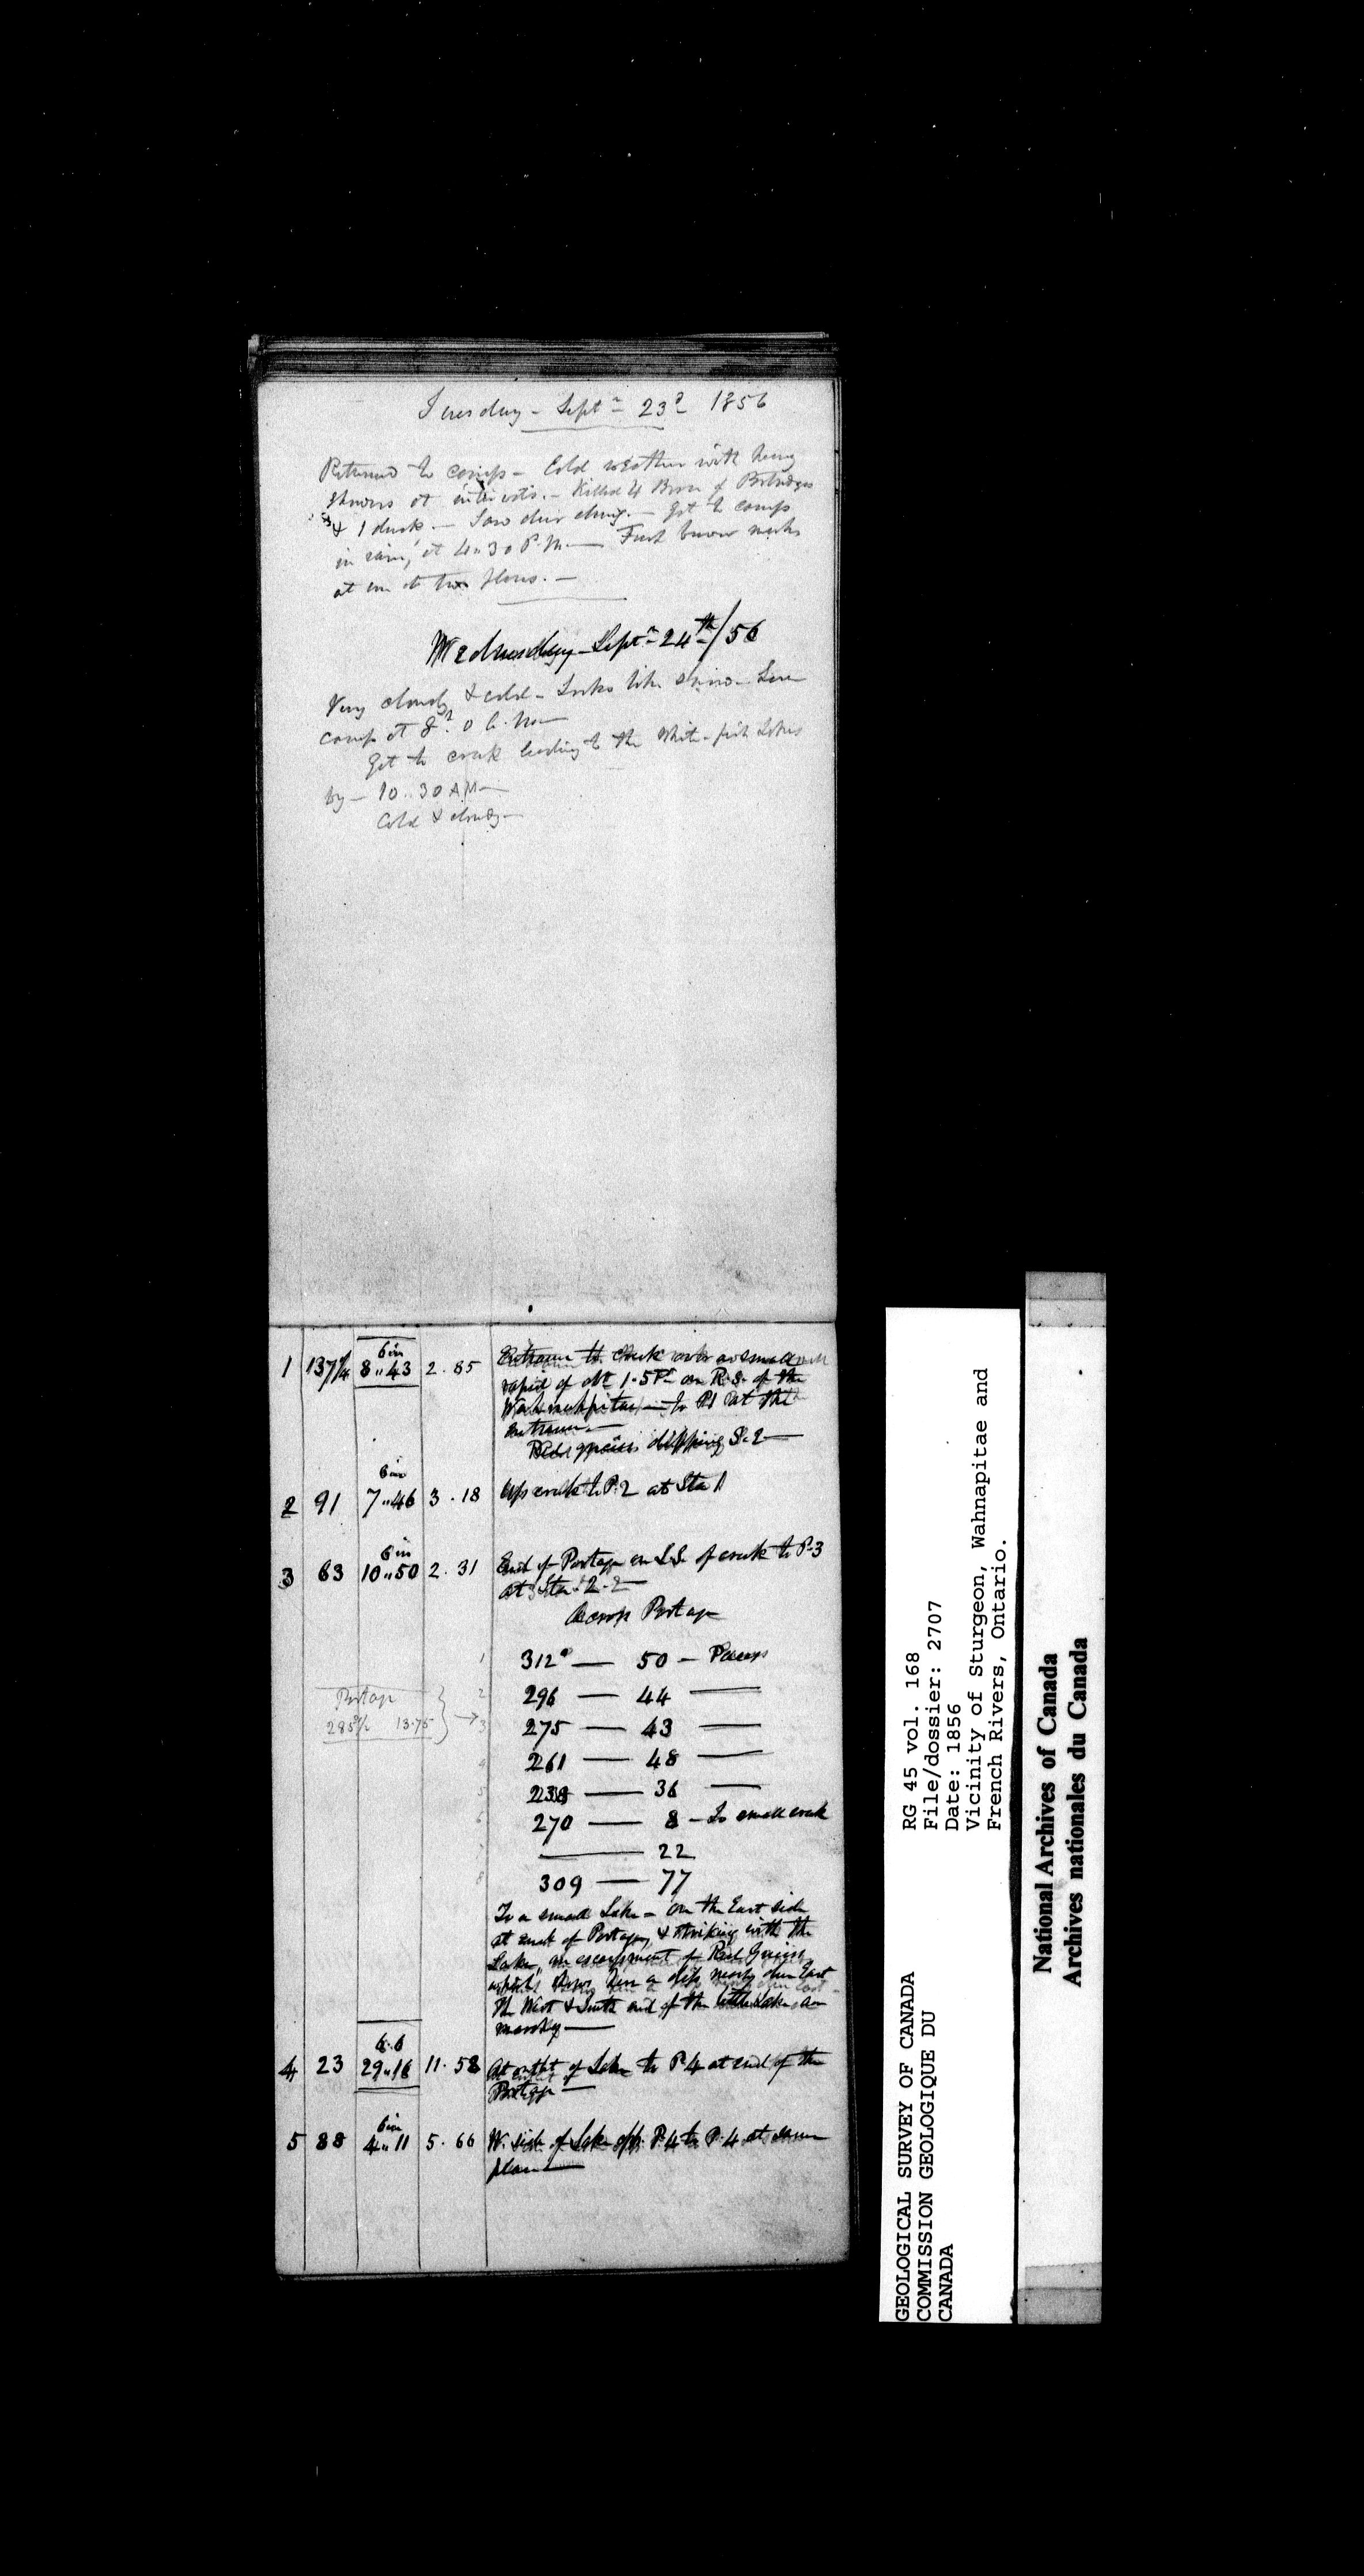 Tuesday - Sept. 23d 1856
Returned to camp - Cold weather with heavy
showers at intervals. - Killed 4 Brace of Partridges
& 1 duck. - Saw deer - Got to camp
in rain, at 4.30 P.M. - Fresh beaver marks
at one or two places. -
Wednesday - Septr. 24th/56
Very cloudy & cold - Looks like snow - Leave
camp at 8
Got to creek leading to the White-fish Lakes
by - 10..30 AM -
Cold & cloudy -
1 137 1/4 6 in 8..43 2.85 Entrance to creek over a small
rapid of abt 1.5 Ft on R.S. of the
Wahnahpitae - to P1 at the
entrance. -
Red gneiss dipping S.
2 91 6 in 7..46 3.18 Up creek to P.2 at Sta 1
3 63 6 in 10..50 2.31 End of Portage on L.S. of creek to P-3
at Sta. 2 -
Across Portage
1 312° — 50 — Paces
2 296 — 44 —
Portage
285 1/2 13.75 } → 3 275 — 43 —
4 261 — 48 —
5 238 — 36 —
6 270 — 8 — To small creek
7 — 22
8 309 — 77
To a small Lake - On the East side
at end of Portage, & striking with the
Lake, an escarpment of Red Gneiss
which shows here a dip nearly due East
The West & South end of the little Lake are
marshy —
4 23 6.6 29..16 11.58 At outlet of Lake to P4 at end of the
Portage —
5 88 6 in 4..11 5.66 W. side of Lake opp. P.4 to P.4 at same
place —
GEOLOGICAL SURVEY OF CANADA
COMMISSION GEOLOGIQUE DU
CANADA
RG 45 vol. 168
File/dossier: 2707
Date: 1856
Vicinity of Sturgeon, Wahnapitae and
French Rivers, Ontario.
National Archives of Canada
Archives nationales du Canada